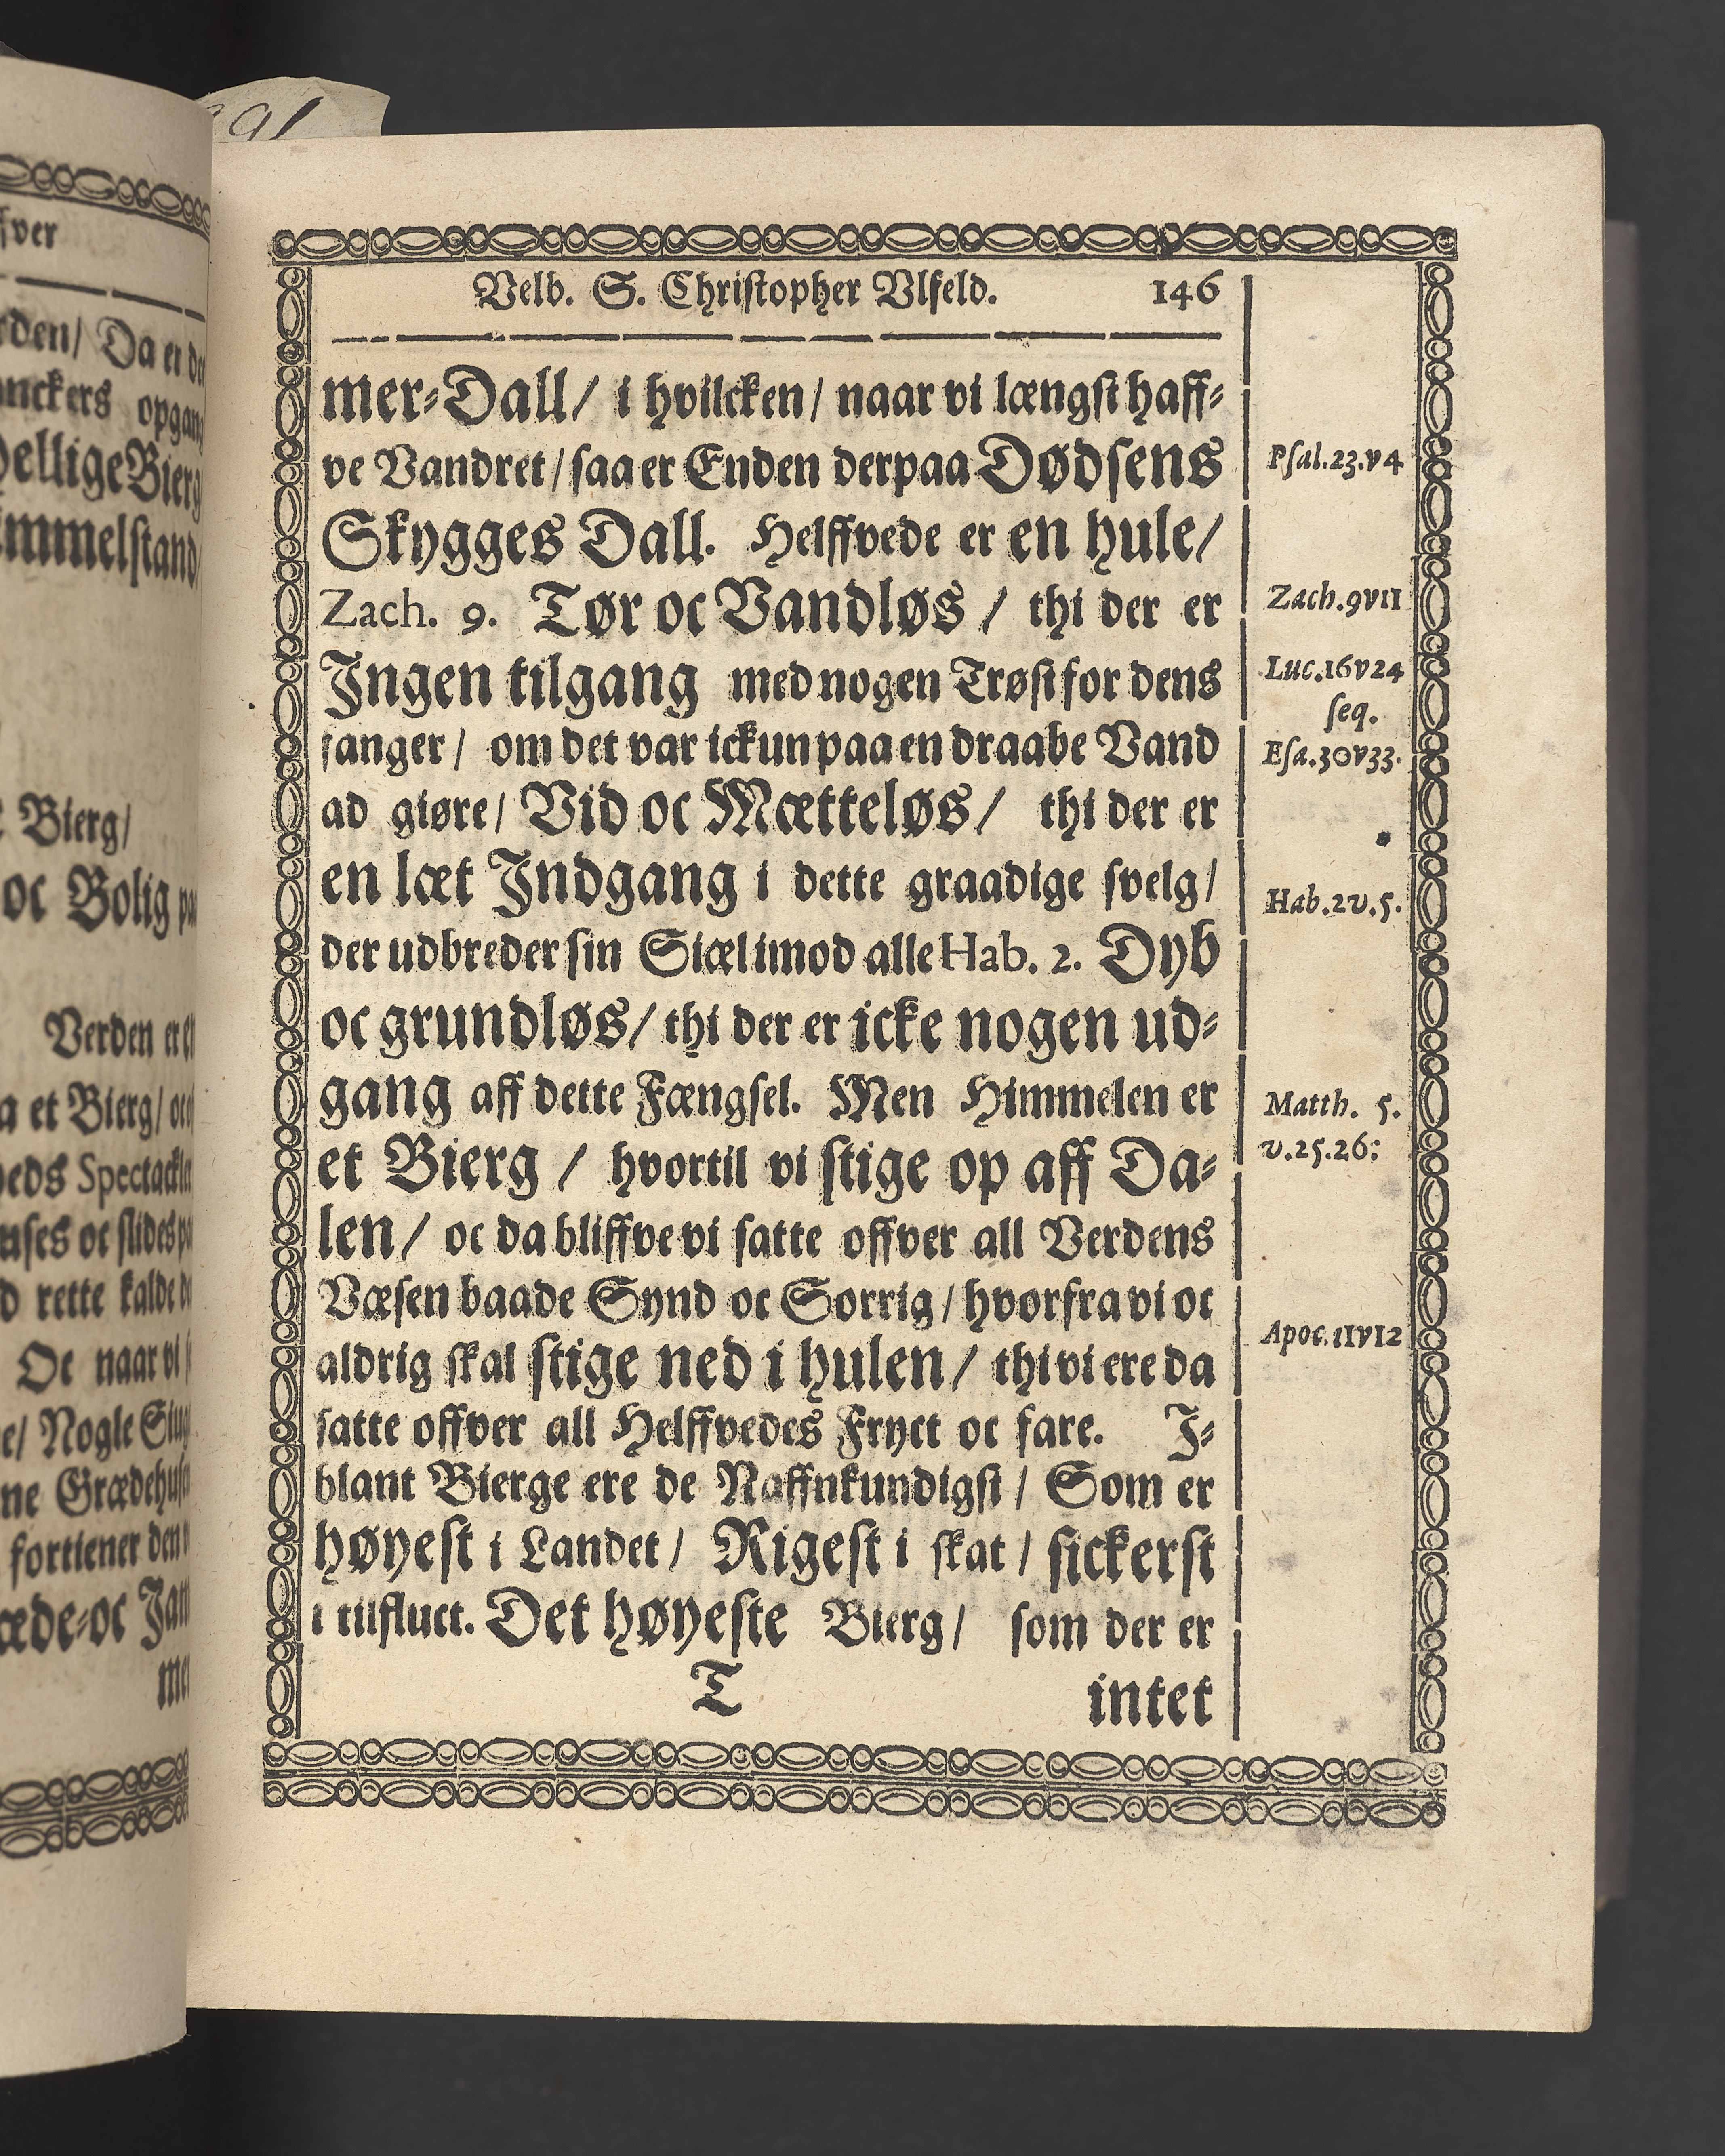 991
fver
rden/ Da er de
nckers opgang
ellige Bierg
mmelstand/
Bierg/
oc Bolig paa
Verden er e
a et Bierg/ oc
eds Spectackle
uses oc slides
d rette kalde
Oc naar vi
e/ Nogle
ne Grædehuse
fortiener den
æde⸗oc Jam
mer
Velb. S. Christopher Vlfeld. 146
mer⸗Dall/ i hvilcken/ naar vi længst haff⸗
ve Vandret/ saa er Enden derpaa Dødsens
Skygges Dall. Helffvede er en hule/
Zach. 9. Tør oc Vandløs/ thi der er
Jngen tilgang med nogen Trøst for dens
fanger/ om det var ickun paa en draabe Vand
ad giøre/ Vid oc Mætteløs/ thi der er
en læt Jndgang i dette graadige svelg/
der udbreder sin Siæl imod alle Hab. 2. Dyb
oc grundløs/ thi der er icke nogen ud⸗
gang aff dette Fængsel. Men Himmelen er
et Bierg/ hvortil vi stige op aff Da⸗
len/ oc da bliffve vi satte offver all Verdens
Væsen baade Synd oc Sorrig/ hvorfra vi oc
aldrig skal stige ned i hulen/ thi vi ere da
satte offver all Helffvedes Fryct oc fare. J⸗
blant Bierge ere de Naffnkundigst/ Som er
høyest i Landet/ Rigest i skat/ sickerst
i tilfluct. Det høyeste Bierg/ som der er
T intet
Psal.23.v4
Zach.9v11
Luc.16v24
seq.
Esa.30v33.
Hab.2v.5.
Matth. 5.
v.25.26:
Apoc.11v12